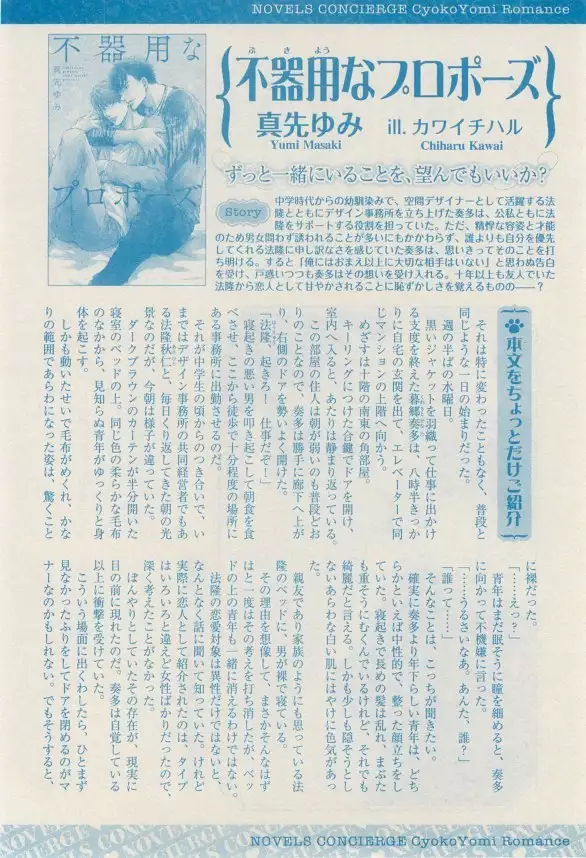 NOVELS CONCIERGE CyokoYomi Romance
不器用な
真先ゆみ
プロポーズ
不器用なプロポーズ
ぶきよう
真先ゆみ ill. カワイチハル
Yumi Masaki Chiharu Kawai
ずっと一緒にいることを、望んでもいいか?
Story
中学時代からの幼馴染みで、空間デザイナーとして活躍する法
隆とともにデザイン事務所を立ち上げた奏多は、公私ともに法
隆をサポートする役割を担っていた。ただ、精悍な容姿と才能
のため男女問わず誘われることが多いにもかかわらず、誰よりも自分を優先
してくれる法隆に申し訳なさを感じていた奏多は、思いきってそのことを打
ち明ける。すると「俺にはおまえ以上に大切な相手はいない」と思わぬ告白
を受け、戸惑いつつも奏多はその想いを受け入れる。十年以上も友人でいた
法隆から恋人として甘やかされることに恥ずかしさを覚えるものの――?
本文をちょっとだけご紹介
それは特に変わったこともなく、普段と
同じような一日の始まりだった。
週の半ばの水曜日。
黒いジャケットを羽織って仕事に出かけ
る支度を終えた暮郷奏多は、八時半きっか
りに自宅の玄関を出て、エレベーターで同
じマンションの上階へ向かう。
めざすは十階の南東の角部屋。
キーリングにつけた合鍵でドアを開け、
室内へ入ると、あたりは静まり返っている。
この部屋の住人は朝が弱いのも普段どお
りのことなので、奏多は勝手に廊下へ上が
り、右側のドアを勢いよく開けた。
「法隆、起きろー 仕事だぞー」
寝起きの悪い男を叩き起こして朝食を食
べさせ、ここから徒歩で十分程度の場所に
ある事務所に出勤させるのだ。
それが中学生の頃からのつき合いで、い
まではデザイン事務所の共同経営者でもあ
る法隆秋仁と、毎日くり返してきた朝の光
景なのだが、今朝は様子が違っていた。
ダークブラウンのカーテンが半分開いた
寝室のベッドの上。同じ色の柔らかな毛布
のなかから、見知らぬ青年がゆっくりと身
体を起こす。
しかも動いたせいで毛布がめくれ、かな
りの範囲であらわになった姿は、驚くこと
に裸だった。
「……えっ?」
青年はまだ眠そうに瞳を細めると、奏多
に向かって不機嫌に言った。
「……うるさいなあ。あんた、誰?」
「誰って……」
そんなことは、こっちが聞きたい。
確実に奏多より年下らしい青年は、どち
らかといえば中性的で、整った顔立ちをし
ていた。寝起きで長めの髪は乱れ、まぶた
も重そうにむくんでいるけれど、それでも
綺麗だと言える。しかも少しも隠そうとし
ないあらわな白い肌にはやけに色気があっ
た。
親友であり家族のようにも思っている法
隆のベッドに、男が裸で寝ている。
その理由を想像して、まさかそんなはず
はと一度はその考えを打ち消したが、ベッ
ドの上の青年も一緒に消えるわけではない。
法隆の恋愛対象は異性だけではないと、
なんとなく話に聞いて知っていた。けれど
実際に恋人として紹介されたのは、タイプ
はいろいろと違えど女性ばかりだったので、
深く考えたことがなかった。
ぼんやりとしていたその存在が、現実に
目の前に現れたのだ。奏多は自覚している
以上に衝撃を受けていた。
こういう場面に出くわしたら、ひとまず
見なかったふりをしてドアを閉めるのがマ
ナーなのかもしれない。でもそうすると、
NOVELS CONCIERGE CyokoYomi Romance